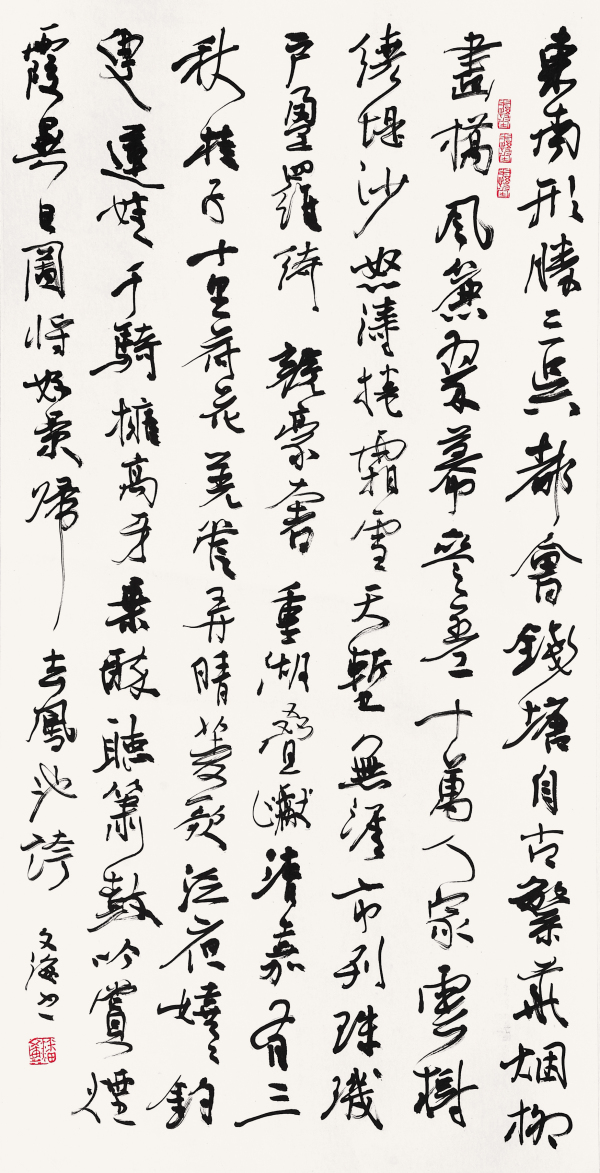 東南形勝三吳都會錢塘自古繁華烟柳
畫橋風簾翠幕參差十萬人家雲樹
繞堤沙怒濤捲霜雪天塹無涯市列珠璣
戶盈羅綺競豪奢重湖疊巘清嘉有三
秋桂子十里荷花羌管弄晴菱歌泛夜嬉〻釣
叟蓮娃千騎擁高牙乘醉聽簫鼓吟賞煙
霞異日圖將好景歸去鳳池誇
文海書